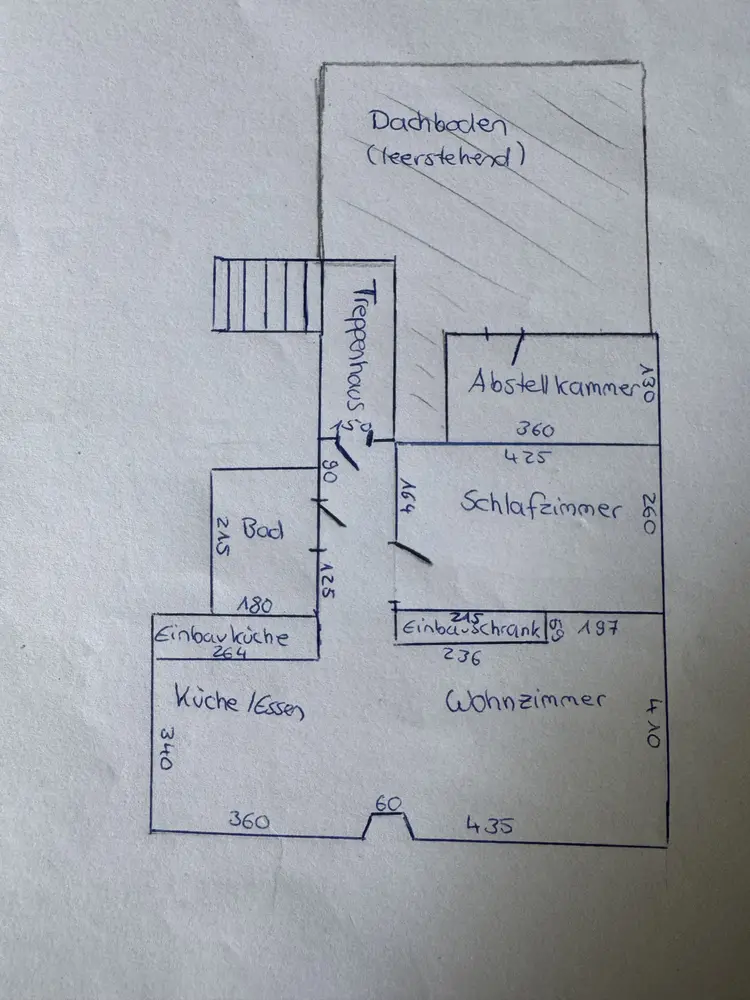 Dachboden
(leerstehend)
Treppenhaus
Abstellkammer
130
360
425
90
164
Schlafzimmer
260
Bad
215
125
180
Einbauküche
264
215
Einbauschrank
69
197
236
Küche/Essen
Wohnzimmer
340
410
60
360
435